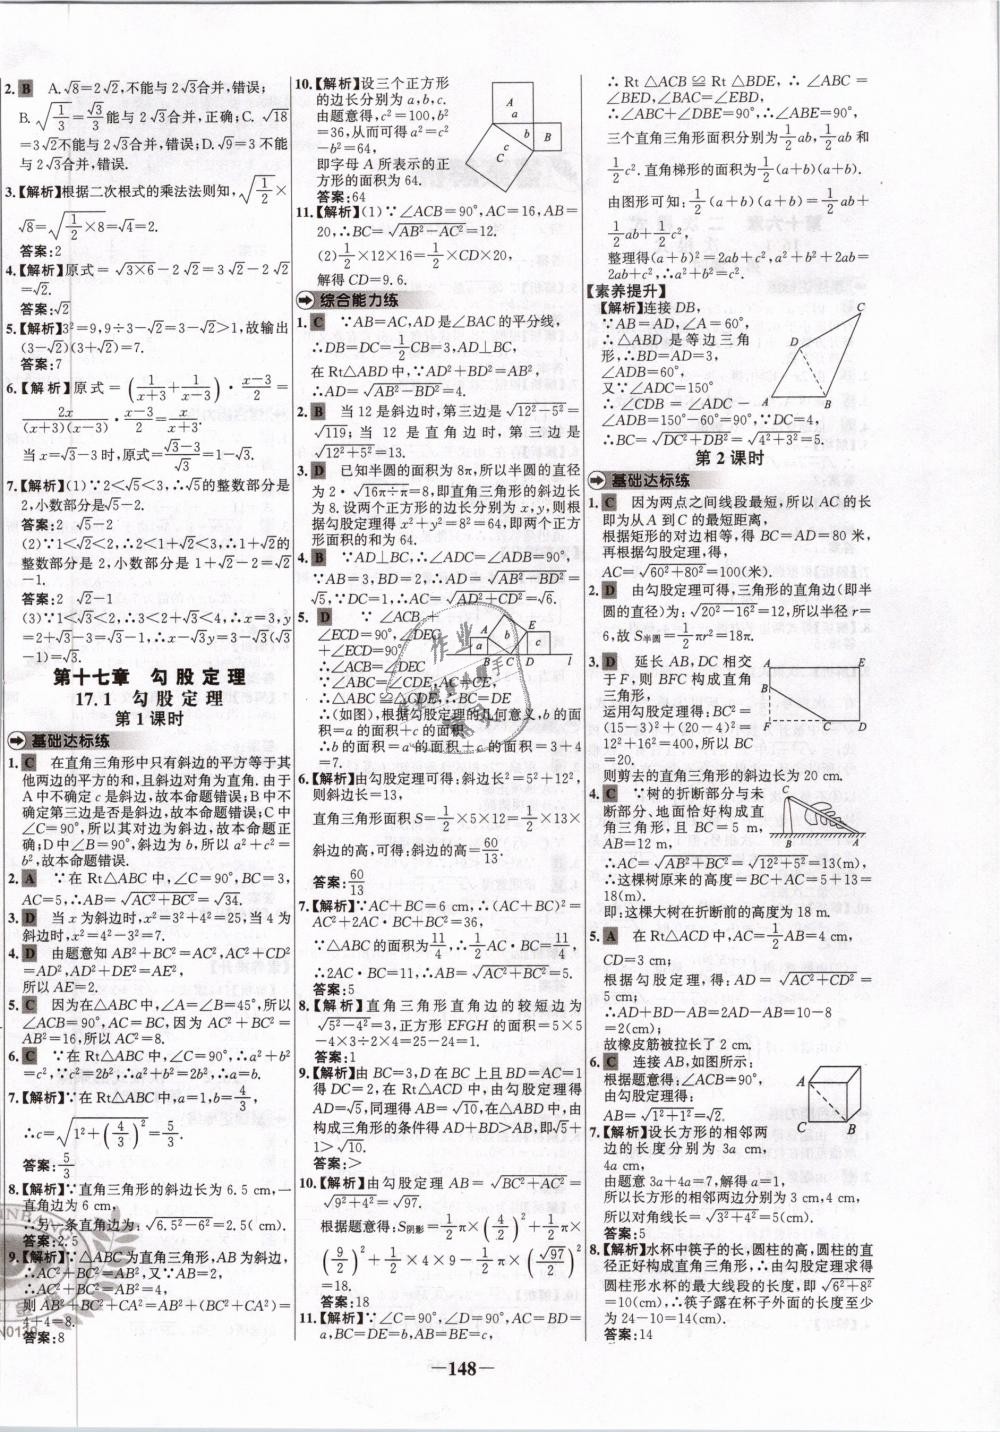 2. B A.√8=2√2,不能与2√3合并,错误;
B.√(1/3)=√3/3能与2√3合并,正确;C.√18
=3√2不能与2√3合并,错误;D.√9=3不能
与2√3合并,错误.
3.【解析】根据二次根式的乘法法则知,√(1/2)×
√8=√(1/2×8)=√4=2.
答案:2
4.【解析】原式=√(3×6)-2√2=3√2-2√2
=√2.
答案:√2
5.【解析】3²=9,9÷3-√2=3-√2>1,故输出
(3-√2)(3+√2)=7.
答案:7
6.【解析】原式=(1/(x+3)+1/(x-3))·(x-3)/2=
2x/((x+3)(x-3))·(x-3)/2=x/(x+3).
当x=√3-3时,原式=(√3-3)/√3=1-√3.
7.【解析】(1)∵2<√5<3,∴√5的整数部分是
2,小数部分是√5-2.
答案:2 √5-2
(2)∵1<√2<2,∴2<1+√2<3,∴1+√2的
整数部分是2,小数部分是1+√2-2=√2
-1.
答案:2 √2-1
(3)∵1<√3<2,∴3<2+√3<4,∴x=3,y
=2+√3-3=√3-1,∴x-√3y=3-√3(√3
-1)=√3.
第十七章 勾股定理
17.1 勾股定理
第1课时
基础达标练
1. C 在直角三角形中只有斜边的平方等于其
他两边的平方的和,且斜边对角为直角.由于
A中不确定c是斜边,故本命题错误;B中不
确定第三边是否是斜边,故本命题错误;C中
∠C=90°,所以其对边为斜边,故本命题正
确;D中∠B=90°,斜边为b,所以a²+c²=
b²,故本命题错误.
2. A ∵在Rt△ABC中,∠C=90°,BC=3,
AC=5,∴AB=√(AC²+BC²)=√34.
3. D 当x为斜边时,x²=3²+4²=25;当4为
斜边时,x²=4²-3²=7.
4. D 由题意知AB²+BC²=AC²,AC²+CD²
=AD²,AD²+DE²=AE²,
所以AE=2.
5. C 因为在△ABC中,∠A=∠B=45°,所以
∠ACB=90°,AC=BC,因为AC²+BC²=
AB²=16,所以AC²=8.
6. C ∵在Rt△ABC中,∠C=90°,∴a²+b²
=c²,∵c²=2b²,∴a²+b²=2b²,∴a=b.
7.【解析】∵在Rt△ABC中,a=1,b=4/3,
∴c=√(1²+(4/3)²)=5/3.
答案:5/3
8.【解析】∵直角三角形的斜边长为6.5 cm,一
直角边为6 cm,
∴另一条直角边为:√(6.5²-6²)=2.5(cm).
答案:2.5
9.【解析】∵△ABC为直角三角形,AB为斜边,
∴AC²+BC²=AB²,又∵AB=2,
∴AC²+BC²=AB²=4,
则AB²+BC²+CA²=AB²+(BC²+CA²)=
4+4=8.
答案:8
10.【解析】设三个正方形
的边长分别为a,b,c.
由题意得,c²=100,b²
=36,从而可得a²=c²
-b²=64,
即字母A所表示的正
方形的面积为64.
答案:64
A
a
b B
c
C
11.【解析】(1)∵∠ACB=90°,AC=16,AB=
20,∴BC=√(AB²-AC²)=12.
(2)1/2×12×16=1/2×CD×20,
解得CD=9.6.
综合能力练
1. C ∵AB=AC,AD是∠BAC的平分线,
∴DB=DC=1/2CB=3,AD⊥BC,
在Rt△ABD中,∵AD²+BD²=AB²,
∴AD=√(AB²-BD²)=4.
2. B 当12是斜边时,第三边是√(12²-5²)=
√119;当12是直角边时,第三边是
√(12²+5²)=13.
3. D 已知半圆的面积为8π,所以半圆的直径
为2·√(16π÷π)=8,即直角三角形的斜边长
为8.设两个正方形的边长分别为x,y,则根
据勾股定理得x²+y²=8²=64,即两个正方
形面积的和为64.
4. B ∵AD⊥BC,∴∠ADC=∠ADB=90°,
∵AB=3,BD=2,∴AD=√(AB²-BD²)=
√5,∵DC=1,∴AC=√(AD²+CD²)=√6.
5. D ∵∠ACB+
∠ECD=90°,∠DEC
+∠ECD=90°,
∴∠ACB=∠DEC
∵∠ABC=∠CDE,AC=CE,
∴△ABC≌△CDE,∴BC=DE
∴(如图),根据勾股定理的几何意义,b的面
积=a的面积+c的面积
∴b的面积=a的面积+c的面积=3+4
=7.
A
a B b C E c D l
6.【解析】由勾股定理可得:斜边长²=5²+12²,
则斜边长=13,
直角三角形面积S=1/2×5×12=1/2×13×
斜边的高,可得:斜边的高=60/13.
答案:60/13
7.【解析】∵AC+BC=6 cm,∴(AC+BC)²=
AC²+2AC·BC+BC²=36,
∵△ABC的面积为11/4,∴1/2AC·BC=11/4,
∴2AC·BC=11,∴AB=√(AC²+BC²)=5.
答案:5
8.【解析】直角三角形直角边的较短边为
√(5²-4²)=3,正方形EFGH的面积=5×5
-4×3÷2×4=25-24=1.
答案:1
9.【解析】由BC=3,D在BC上且BD=AC=1
得DC=2,在Rt△ACD中,由勾股定理得
AD=√5,同理得AB=√10,在△ABD中,由
构成三角形的条件得AD+BD>AB,即√5+
1>√10.
答案:>
10.【解析】由勾股定理AB=√(BC²+AC²)=
√(9²+4²)=√97.
根据题意得:S阴影=1/2π×(4/2)²+1/2π×
(9/2)²+1/2×4×9-1/2π×(√97/2)²
=18.
答案:18
11.【解析】∵∠C=90°,∠D=90°,AC=BD=
a,BC=DE=b,AB=BE=c,
∴Rt△ACB≌Rt△BDE,∴∠ABC=
∠BED,∠BAC=∠EBD,
∴∠ABC+∠DBE=90°,∴∠ABE=90°,
三个直角三角形面积分别为1/2ab,1/2ab和
1/2c².直角梯形的面积为1/2(a+b)(a+b).
由图形可知:1/2(a+b)(a+b)=1/2ab+
1/2ab+1/2c²,
整理得(a+b)²=2ab+c²,a²+b²+2ab=
2ab+c²,∴a²+b²=c².
【素养提升】
【解析】连接DB,
∵AB=AD,∠A=60°,
∴△ABD是等边三角
形,∴BD=AD=3,
∠ADB=60°,
又∵∠ADC=150°
∴∠CDB=∠ADC-
∠ADB=150°-60°=90°,∵DC=4,
∴BC=√(DC²+DB²)=√(4²+3²)=5.
C
D
A
B
第2课时
基础达标练
1. C 因为两点之间线段最短,所以AC的长
即为从A到C的最短距离,
根据矩形的对边相等,得BC=AD=80米,
再根据勾股定理,得,
AC=√(60²+80²)=100(米).
2. D 由勾股定理可得,三角形的直角边(即半
圆的直径)为:√(20²-16²)=12,所以半径r=
6,故S半圆=1/2πr²=18π.
3. D 延长AB,DC相交
于F,则BFC构成直角
三角形,
运用勾股定理得:BC²=
(15-3)²+(20-4)²=
12²+16²=400,所以BC
=20.
则剪去的直角三角形的斜边长为20 cm.
A E
B
F C D
4. C ∵树的折断部分与未
断部分、地面恰好构成直
角三角形,且BC=5 m,
AB=12 m,
∴AC=√(AB²+BC²)=√(12²+5²)=13(m),
∴这棵树原来的高度=BC+AC=5+13=
18(m).
即:这棵大树在折断前的高度为18 m.
C
B A
5. A 在Rt△ACD中,AC=1/2AB=4 cm,
CD=3 cm;
根据勾股定理,得:AD=√(AC²+CD²)=
5 cm;
∴AD+BD-AB=2AD-AB=10-8
=2(cm);
故橡皮筋被拉长了2 cm.
6. C 连接AB,如图所示:
根据题意得:∠ACB=90°,
由勾股定理得:
AB=√(1²+1²)=√2.
A
C B
7.【解析】设长方形的相邻两
边的长度分别为3a cm,
4a cm,
由题意3a+4a=7,解得a=1,
所以长方形的相邻两边分别为3 cm,4 cm,
所以对角线长=√(3²+4²)=5.
答案:5
8.【解析】水杯中筷子的长,圆柱的高,圆柱的直
径正好构成直角三角形,∴由勾股定理求得
圆柱形水杯的最大线段的长度,即√(6²+8²)
=10(cm),∴筷子露在杯子外面的长度至少
为24-10=14(cm).
答案:14
—148—
作业